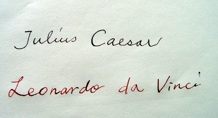 Julius Caesar
Leonardo da Vinci